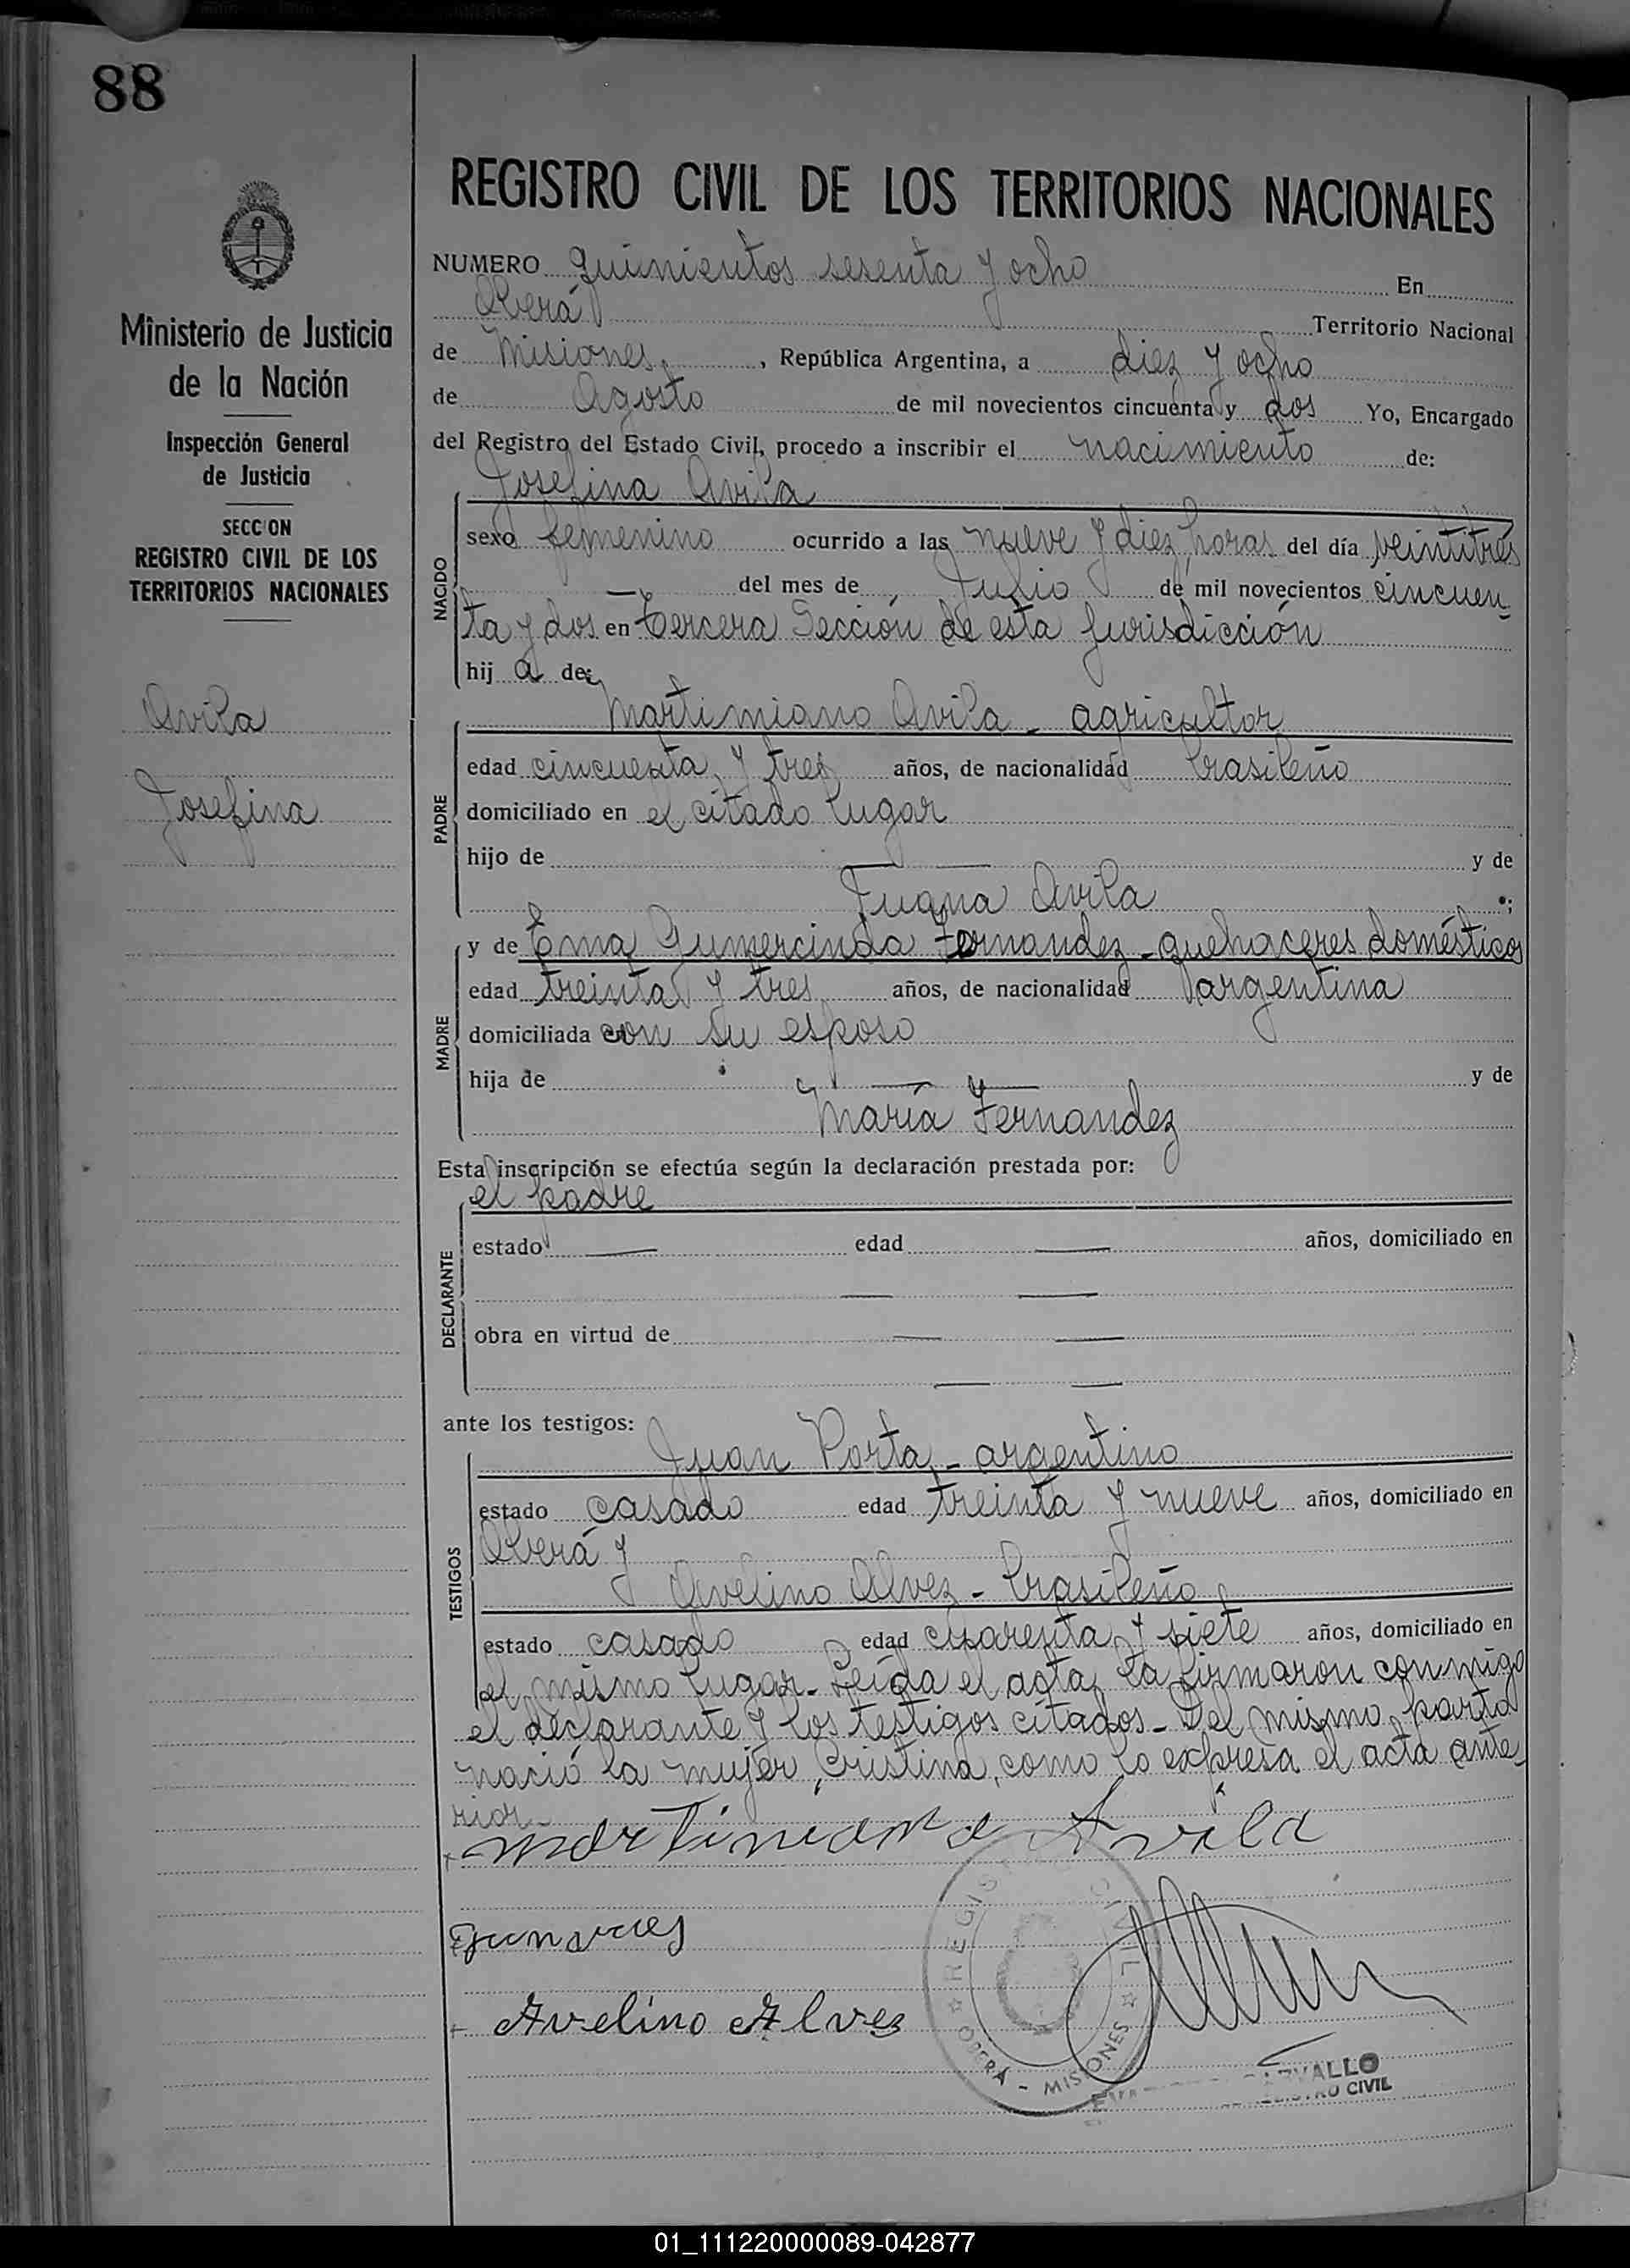 88
REGISTRO CIVIL DE LOS TERRITORIOS NACIONALES
Ministerio de Justicia
de la Nación
Inspección General
de Justicia
SECCION
REGISTRO CIVIL DE LOS
TERRITORIOS NACIONALES
Avila
Josefina
NUMERO quinientos sesenta y ocho En
Oberá Territorio Nacional
de Misiones, República Argentina, a diez y ocho
de Agosto de mil novecientos cincuenta y dos Yo, Encargado
del Registro del Estado Civil, procedo a inscribir el nacimiento de:
Josefina Avila
NACIDO
sexo femenino ocurrido a las nueve y diez horas del día veintitrés
— del mes de Julio de mil novecientos cincuen-
ta y dos en tercera Sección de esta jurisdicción
hij a de:
Martimiano Avila - agricultor
PADRE
edad cincuenta y tres años, de nacionalidad brasileño
domiciliado en el citado lugar
hijo de — — y de
Juana Avila ;
y de Ema Gumercinda Fernandez - quehaceres domésticos
MADRE
edad treinta y tres años, de nacionalidad argentina
domiciliada con su esposo
hija de — — y de
María Fernandez
Esta inscripción se efectúa según la declaración prestada por:
el padre
DECLARANTE
estado — edad — años, domiciliado en
— —
obra en virtud de — —
— —
ante los testigos:
Juan Porta - argentino
TESTIGOS
estado casado edad treinta y nueve años, domiciliado en
Oberá y
Avelino Alvez - brasileño
estado casado edad cuarenta y siete años, domiciliado en
el mismo lugar. Leída el acta, la firmaron conmigo
el declarante y los testigos citados - Del mismo parto
nació la mujer, Cristina, como lo expresa el acta ante
rior -
martimiano Avila
Avelino Alves
REGISTRO CIVIL
OBERÁ - MISIONES
VALLO
CIVIL
01_111220000089-042877